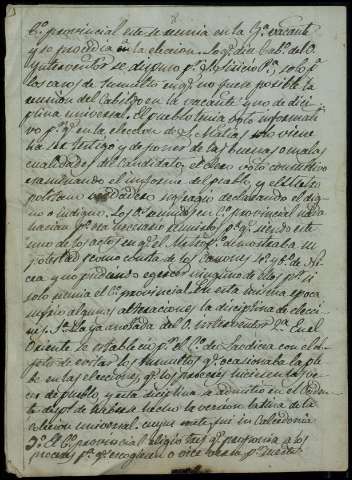 Cº provincial este se reunia en la Ygª vacante
y se procedia en la eleccion. Lo qº del Cabº del O.
Ynterventor se dispuso pº S. Siricio Pª, solo pª
los casos de tumulto en qº no fuera posible la
reunion del Cabildo en la vacante y no de dici-
plina universal. El pueblo tenia voto informati-
vo pº qº en la eleccion de S. Matias solo viene
ha ser testigo y deponer de las buenas o malas
cualidades del Candidato, el clero voto consultivo
examinando el informe del pueblo, y el Metro-
politano verdadero sufragio declarando el dig-
no o indigno. Los reunidos en Cº provincial nada
hacian qº era necesario al mismo pº qº siendo este
uno de los actos en qº el Metropº demostraba su
potestad como consta de los Canones 4º y 6º de Ni-
cea y no pudiendo egercer ninguno de ellos pº si
solo reunia el Cº provincial. En esta misma epoca
sufrio algunas alteraciones la disciplina de elecci-
nes. 1ª La ya anotada del O. interventor 2ª. En el
Oriente se establecio pº el Cº de Laodicia con el ob-
jeto de evitar los tumultos qº ocasionaba la ple-
be en las elecciones, qº los proceres hicieran las ve-
ces de pueblo, y esta diciplina se admitio en el Occiden-
te despº de haberse hecho la version latina de la
coleccion universal. aunque mate fui in Calcedonia
3ª El Cº provincial eligio tres qº proponia a los
proceres pº qº escogieran o vice versa pº puesta